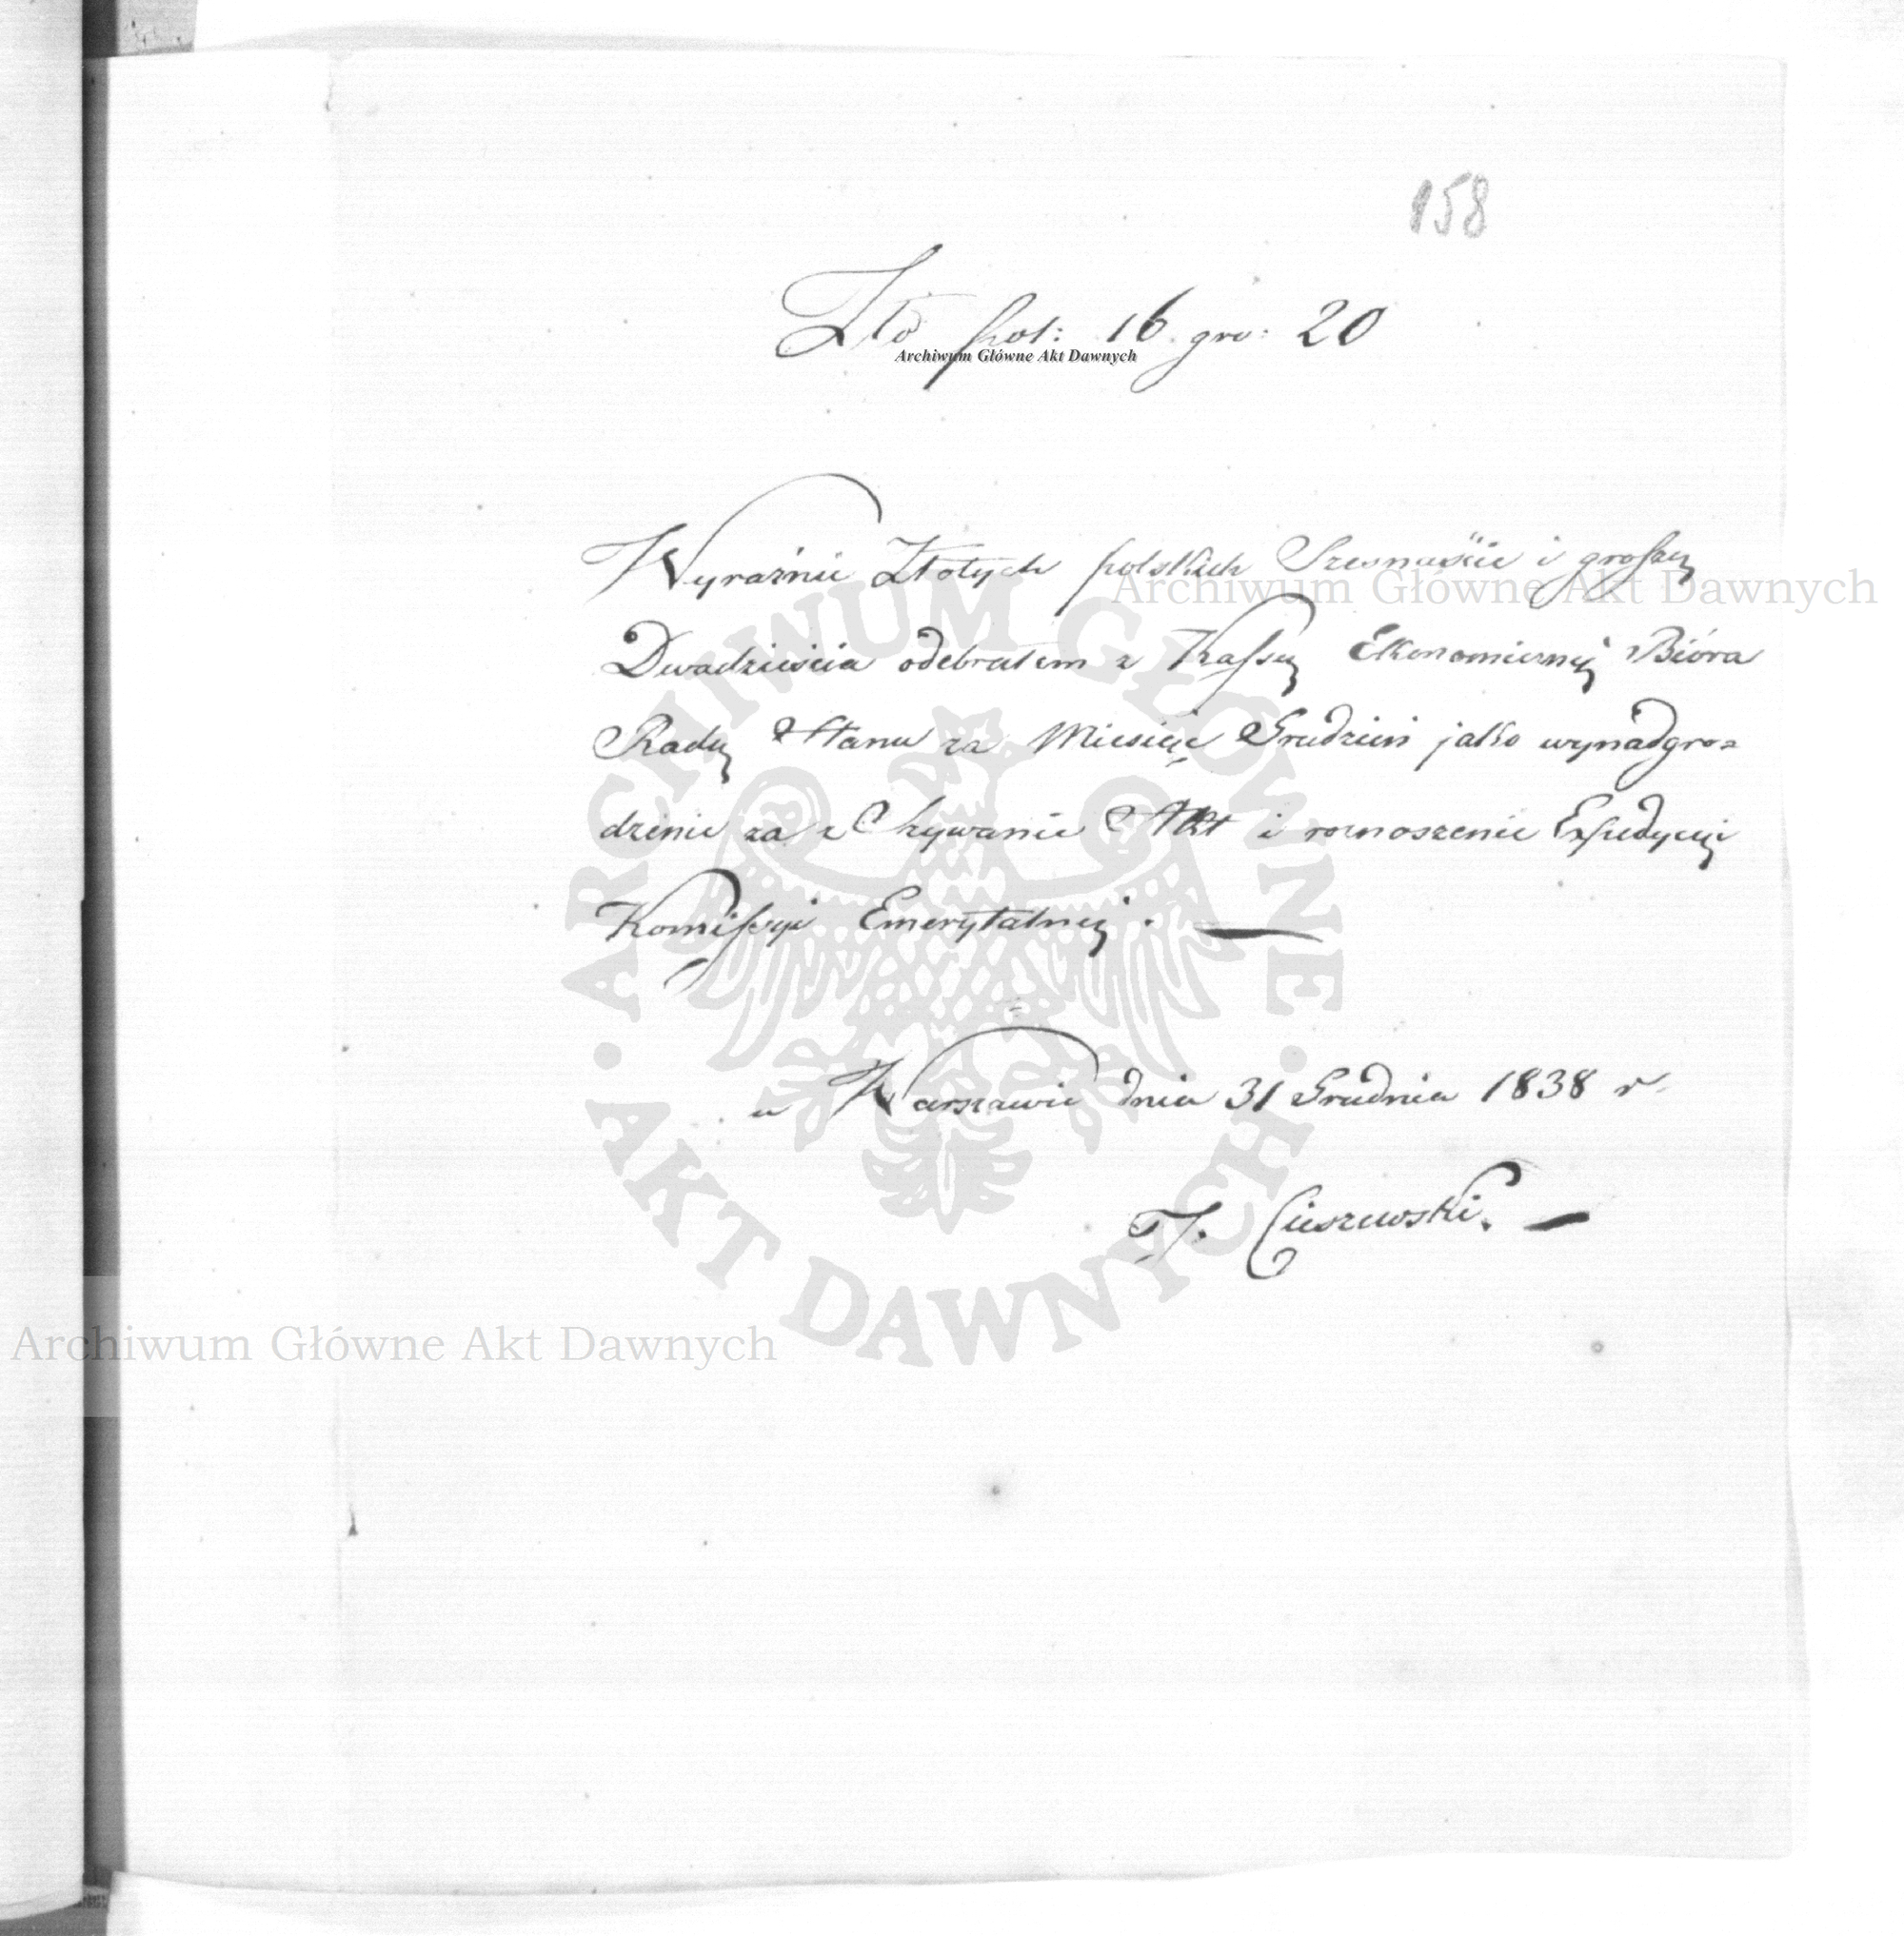 158
Zło pol: 16 gro: 20
Archiwum Główne Akt Dawnych
Wyraźnie Złotych polskich Szesnaście i groszy
Archiwum Główne Akt Dawnych
Dwadzieścia odebrałem z Kassy Ekonomicznej Bióra
Rady Stanu za Miesiąc Grudzień jako wynadgro=
dzenie za z Szywanie Akt i roznoszenie Expedycyi
Kommissyi Emerytalnej. —
w Warszawie dnia 31 Grudnia 1838 r.
Cieszewski. —
ARCHIWUM GŁÓWNE
AKT DAWNYCH
Archiwum Główne Akt Dawnych